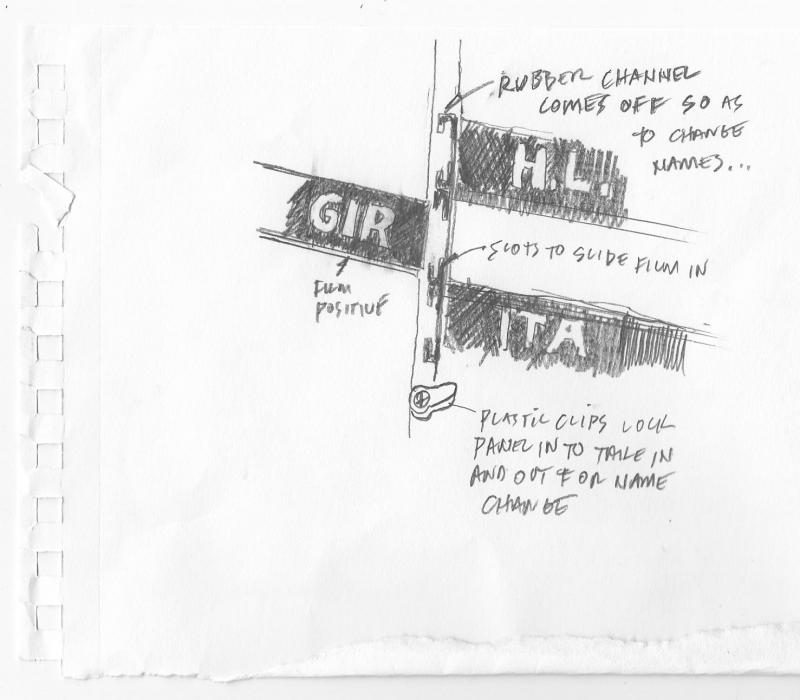 RUBBER CHANNEL
COMES OFF SO AS
TO CHANGE
NAMES...
H.L.
GIR
SLOTS TO SLIDE FILM IN
FILM
POSITIVE
ITA
PLASTIC CLIPS LOCK
PANEL IN TO TAKE IN
AND OUT FOR NAME
CHANGE